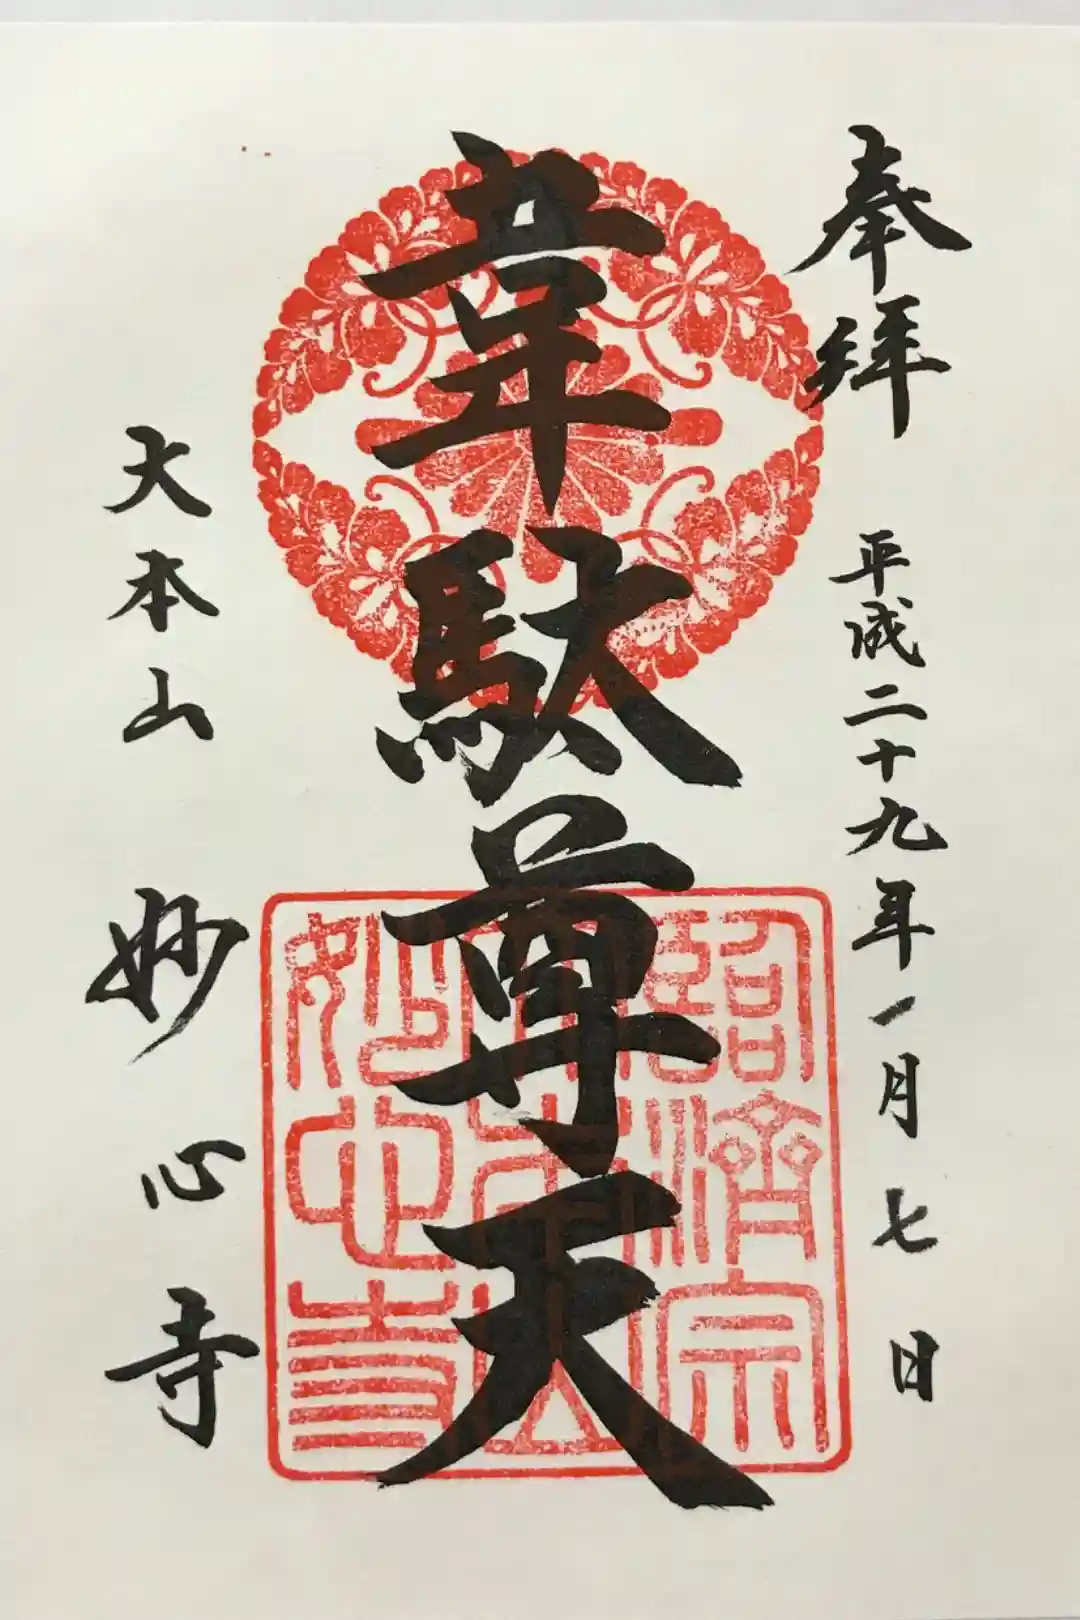 奉拝
平成二十九年一月七日
韋駄尊天
大本山 妙心寺
臨済宗
大本山
妙心寺